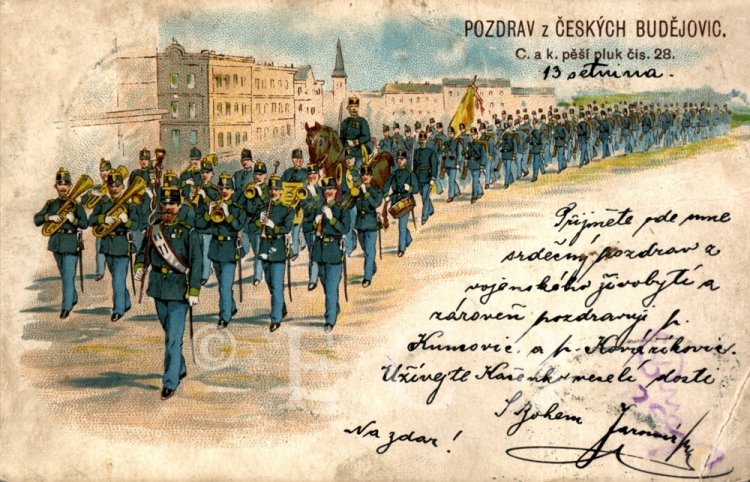 POZDRAV z ČESKÝCH BUDĚJOVIC.
C. a k. pěší pluk čís. 28.
13 setnina.
Přijměte ode mne
srdečný pozdrav z
vojenského živobytí a
zároveň pozdravuji p.
Kumovic. a p. Kovaříkovic.
Užívejte Kačenko veselí dosti
S Bohem Jaromír
Na zdar!
©